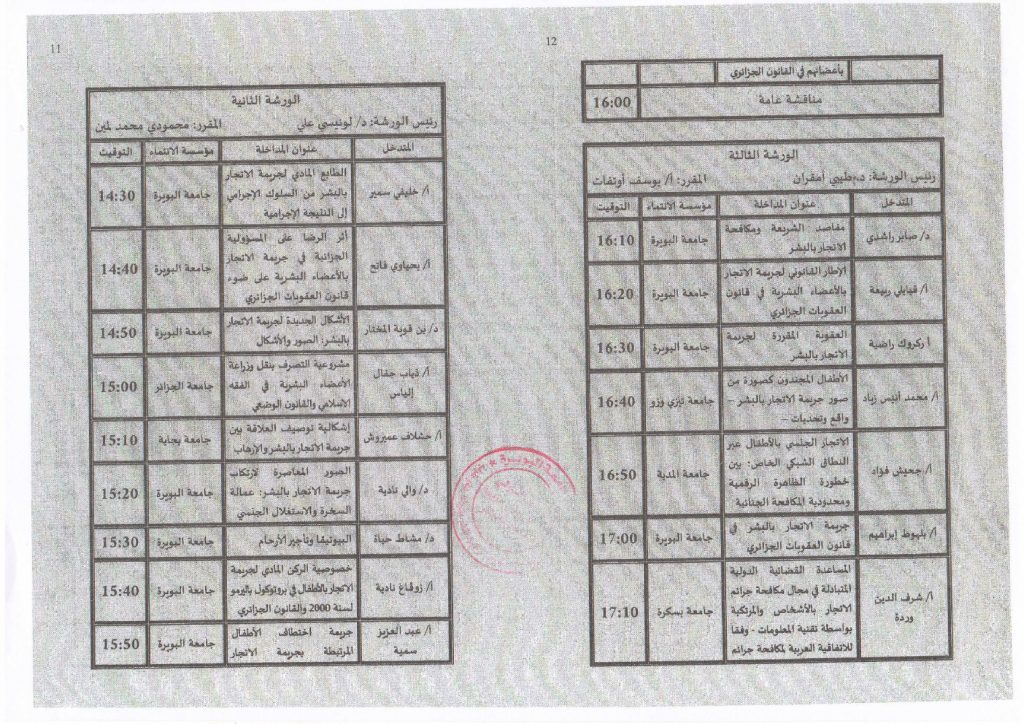 11
الورشة الثانية
رئيس الورشة: د/ لونيسي علي المقرر: محمودي محمد لمين
المتدخل عنوان المداخلة مؤسسة الانتماء التوقيت
الطابع المادي لجريمة الاتجار
أ/ خليفي سمير بالبشر من السلوك الإجرامي جامعة البويرة 14:30
إلى النتيجة الإجرامية
أثر الرضا على المسؤولية
الجزائية في جريمة الاتجار
أ/ يحياوي فاتح بالأعضاء البشرية على ضوء جامعة البويرة 14:40
قانون العقوبات الجزائري
الأشكال الجديدة لجريمة الاتجار
د/ بن قوية المختار بالبشر: الصور والأشكال جامعة البويرة 14:50
مشروعية التصرف بنقل وزراعة
أ/ ذياب جفال الأعضاء البشرية في الفقه جامعة الجزائر 15:00
إلياس الاسلامي والقانون الوضعي
إشكالية توصيف العلاقة بين
أ/ حشلاف عميروش جريمة الاتجار بالبشر والإرهاب جامعة بجاية 15:10
الصور المعاصرة لارتكاب
د/ والي نادية جريمة الاتجار بالبشر: عمالة جامعة البويرة 15:20
السخرة والاستغلال الجنسي
د/ مشاط حياة البيوتيقا وتأجير الأرحام جامعة البويرة 15:30
خصوصية الركن المادي لجريمة
أ/ زوقاغ نادية الاتجار بالأطفال في بروتوكول باليرمو جامعة البويرة 15:40
لسنة 2000 والقانون الجزائري
أ/ عبد العزيز جريمة اختطاف الأطفال
سمية المرتبطة بجريمة الاتجار جامعة البويرة 15:50
12
بأعضائهم في القانون الجزائري
مناقشة عامة 16:00
الورشة الثالثة
رئيس الورشة: د. طيبي أمقران المقرر: أ/ يوسف أوتفات
المتدخل عنوان المداخلة مؤسسة الانتماء التوقيت
مقاصد الشريعة ومكافحة
د/ صابر راشدي الاتجار بالبشر جامعة البويرة 16:10
الإطار القانوني لجريمة الاتجار
أ/ قبايلي ربيعة بالأعضاء البشرية في قانون جامعة البويرة 16:20
العقوبات الجزائري
العقوبة المقررة لجريمة
أ ركروك راضية الاتجار بالبشر جامعة البويرة 16:30
الأطفال المجندون كصورة من
أ/ محمد أنيس زياد صور جريمة الاتجار بالبشر – جامعة تيزي وزو 16:40
واقع وتحديات –
الاتجار الجنسي بالأطفال عبر
النطاق الشبكي الخاص: بين
أ/ جعيش فؤاد خطورة الظاهرة الرقمية جامعة المدية 16:50
ومحدودية المكافحة الجنائية
جريمة الاتجار بالبشر في
أ/ بلهوط إبراهيم قانون العقوبات الجزائري جامعة البويرة 17:00
المساعدة القضائية الدولية
المتبادلة في مجال مكافحة جرائم
أ/ شرف الدين الاتجار بالأشخاص والمرتكبة
وردة بواسطة تقنية المعلومات - وفقا جامعة بسكرة 17:10
للاتفاقية العربية لمكافحة جرائم